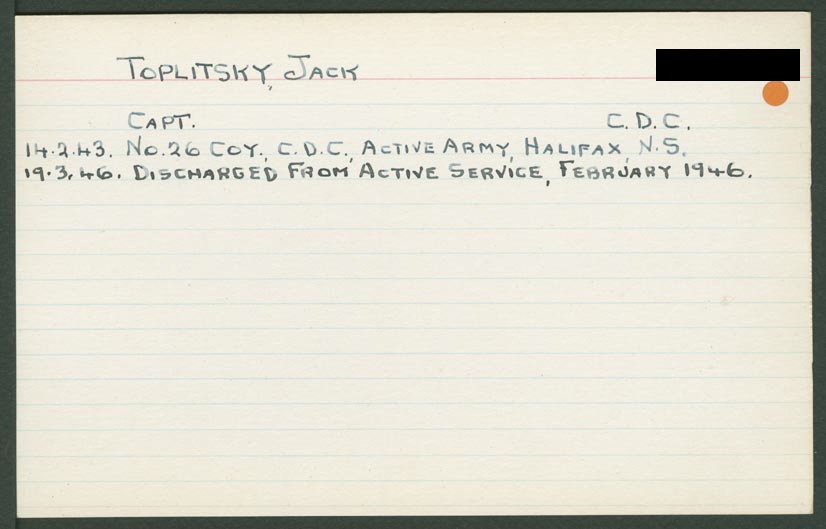 TOPLITSKY, JACK
CAPT. C.D.C.
14.2.43. NO.26 COY., C.D.C., ACTIVE ARMY, HALIFAX, N.S.
19.3.46. DISCHARGED FROM ACTIVE SERVICE, FEBRUARY 1946.